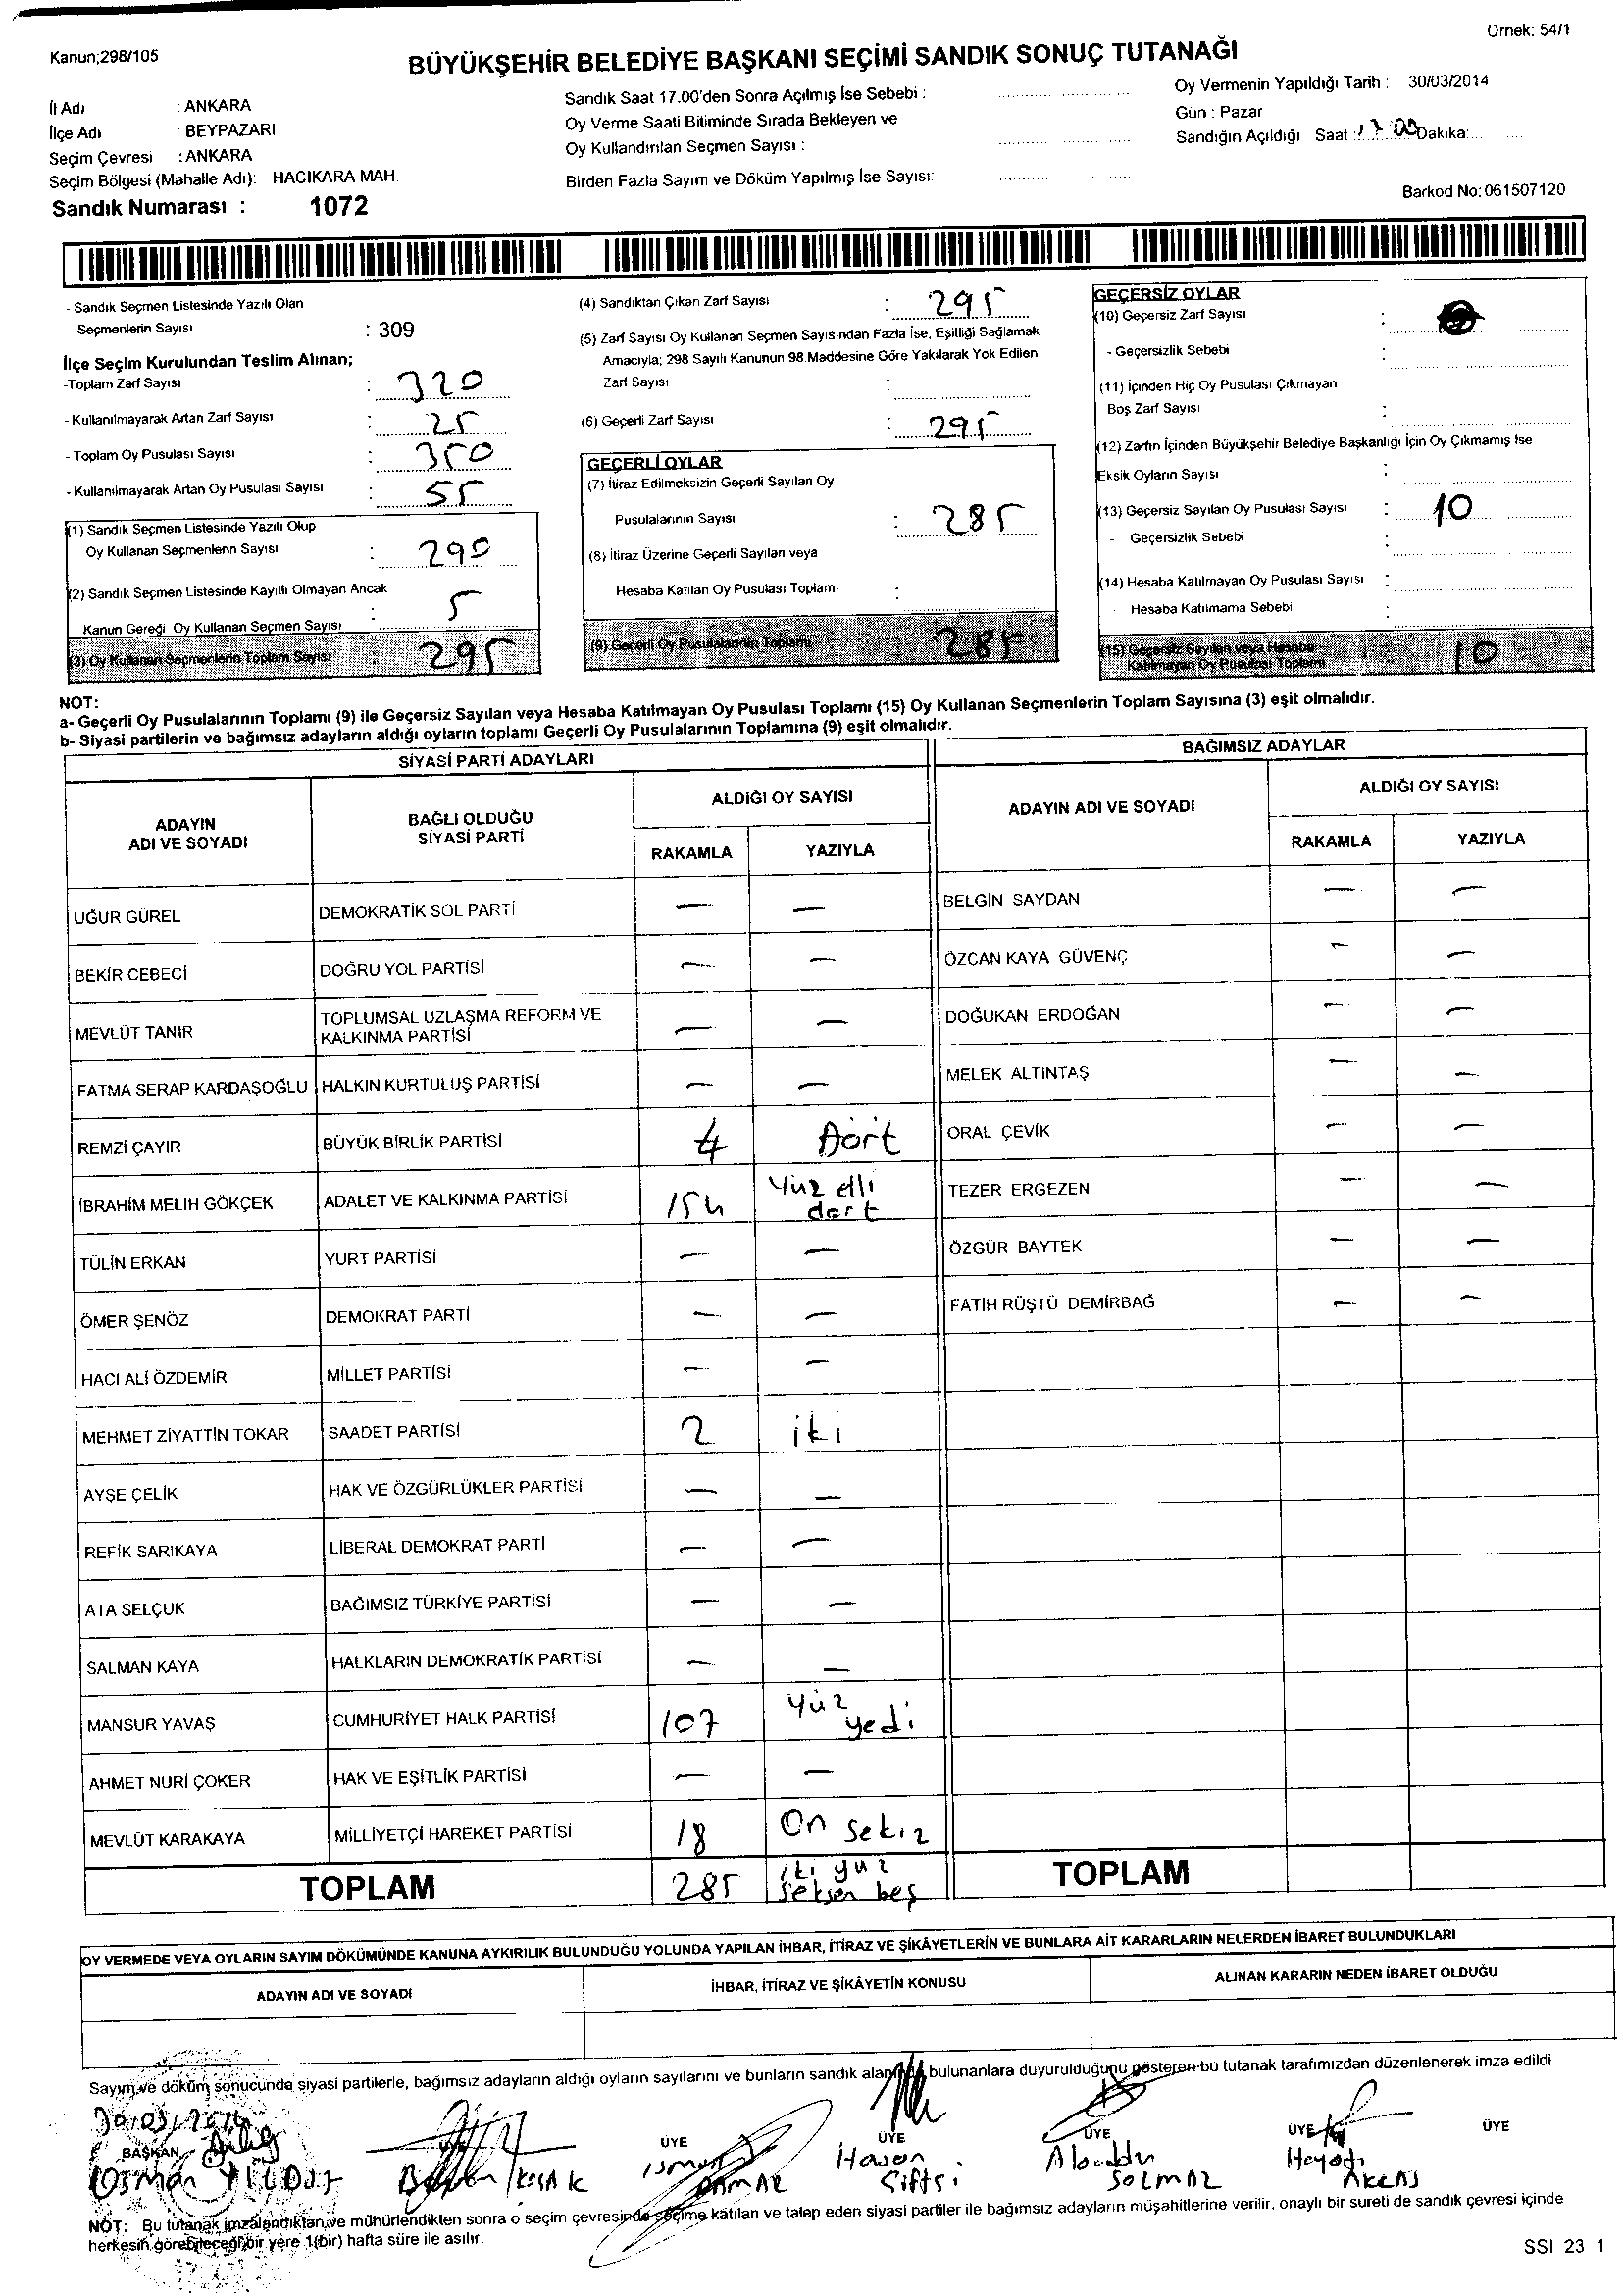 Ornek: 54/1
Kanun;298/105
BÜYÜKŞEHİR BELEDİYE BAŞKANI SEÇİMİ SANDIK SONUÇ TUTANAĞI
İl Adı : ANKARA
İlçe Adı : BEYPAZARI
Seçim Çevresi : ANKARA
Seçim Bölgesi (Mahalle Adı): HACIKARA MAH.
Sandık Numarası : 1072
Sandık Saat 17.00'den Sonra Açılmış İse Sebebi :
Oy Verme Saati Bitiminde Sırada Bekleyen ve
Oy Kullandırılan Seçmen Sayısı :
Birden Fazla Sayım ve Döküm Yapılmış İse Sayısı:
Oy Vermenin Yapıldığı Tarih : 30/03/2014
Gün : Pazar
Sandığın Açıldığı Saat : 17 00 Dakika:
Barkod No: 061507120
- Sandık Seçmen Listesinde Yazılı Olan
Seçmenlerin Sayısı : 309
İlçe Seçim Kurulundan Teslim Alınan;
-Toplam Zarf Sayısı : 320
- Kullanılmayarak Artan Zarf Sayısı : 25
- Toplam Oy Pusulası Sayısı : 350
- Kullanılmayarak Artan Oy Pusulası Sayısı : 55
(1) Sandık Seçmen Listesinde Yazılı Olup
Oy Kullanan Seçmenlerin Sayısı : 290
(2) Sandık Seçmen Listesinde Kayıtlı Olmayan Ancak
Kanun Gereği Oy Kullanan Seçmen Sayısı : 5
(3) Oy Kullanan Seçmenlerin Toplam Sayısı : 295
(4) Sandıktan Çıkan Zarf Sayısı : 295
(5) Zarf Sayısı Oy Kullanan Seçmen Sayısından Fazla İse, Eşitliği Sağlamak
Amacıyla; 298 Sayılı Kanunun 98.Maddesine Göre Yakılarak Yok Edilen
Zarf Sayısı :
(6) Geçerli Zarf Sayısı : 295
GEÇERLİ OYLAR
(7) İtiraz Edilmeksizin Geçerli Sayılan Oy
Pusulalarının Sayısı : 285
(8) İtiraz Üzerine Geçerli Sayılan veya
Hesaba Katılan Oy Pusulası Toplamı :
(9) Geçerli Oy Pusulalarının Toplamı : 285
GEÇERSİZ OYLAR
(10) Geçersiz Zarf Sayısı :
- Geçersizlik Sebebi :
(11) İçinden Hiç Oy Pusulası Çıkmayan
Boş Zarf Sayısı :
(12) Zarfın İçinden Büyükşehir Belediye Başkanlığı İçin Oy Çıkmamış İse
Eksik Oyların Sayısı :
(13) Geçersiz Sayılan Oy Pusulası Sayısı : 10
- Geçersizlik Sebebi :
(14) Hesaba Katılmayan Oy Pusulası Sayısı :
Hesaba Katılmama Sebebi :
(15) Geçersiz Sayılan veya Hesaba
Katılmayan Oy Pusulası Toplamı 10
NOT:
a- Geçerli Oy Pusulalarının Toplamı (9) ile Geçersiz Sayılan veya Hesaba Katılmayan Oy Pusulası Toplamı (15) Oy Kullanan Seçmenlerin Toplam Sayısına (3) eşit olmalıdır.
b- Siyasi partilerin ve bağımsız adayların aldığı oyların toplamı Geçerli Oy Pusulalarının Toplamına (9) eşit olmalıdır.
SİYASİ PARTİ ADAYLARI BAĞIMSIZ ADAYLAR
ADAYIN ADI VE SOYADI
BAĞLI OLDUĞU SİYASİ PARTİ
ALDIĞI OY SAYISI
RAKAMLA YAZIYLA
ADAYIN ADI VE SOYADI
ALDIĞI OY SAYISI
RAKAMLA YAZIYLA
UĞUR GÜREL DEMOKRATİK SOL PARTİ — — BELGİN SAYDAN — —
BEKİR CEBECİ DOĞRU YOL PARTİSİ — — ÖZCAN KAYA GÜVENÇ — —
MEVLÜT TANIR TOPLUMSAL UZLAŞMA REFORM VE KALKINMA PARTİSİ — — DOĞUKAN ERDOĞAN — —
FATMA SERAP KARDAŞOĞLU HALKIN KURTULUŞ PARTİSİ — — MELEK ALTINTAŞ — —
REMZİ ÇAYIR BÜYÜK BİRLİK PARTİSİ 4 Dört ORAL ÇEVİK — —
İBRAHİM MELİH GÖKÇEK ADALET VE KALKINMA PARTİSİ 154 Yüz elli dört TEZER ERGEZEN — —
TÜLİN ERKAN YURT PARTİSİ — — ÖZGÜR BAYTEK — —
ÖMER ŞENÖZ DEMOKRAT PARTİ — — FATİH RÜŞTÜ DEMİRBAĞ — —
HACI ALİ ÖZDEMİR MİLLET PARTİSİ — —
MEHMET ZİYATTİN TOKAR SAADET PARTİSİ 2 iki
AYŞE ÇELİK HAK VE ÖZGÜRLÜKLER PARTİSİ — —
REFİK SARIKAYA LİBERAL DEMOKRAT PARTİ — —
ATA SELÇUK BAĞIMSIZ TÜRKİYE PARTİSİ — —
SALMAN KAYA HALKLARIN DEMOKRATİK PARTİSİ — —
MANSUR YAVAŞ CUMHURİYET HALK PARTİSİ 107 Yüz yedi
AHMET NURİ ÇOKER HAK VE EŞİTLİK PARTİSİ — —
MEVLÜT KARAKAYA MİLLİYETÇİ HAREKET PARTİSİ 18 On sekiz
TOPLAM 285 iki yüz seksen beş TOPLAM
OY VERMEDE VEYA OYLARIN SAYIM DÖKÜMÜNDE KANUNA AYKIRILIK BULUNDUĞU YOLUNDA YAPILAN İHBAR, İTİRAZ VE ŞİKÂYETLERİN VE BUNLARA AİT KARARLARIN NELERDEN İBARET BULUNDUKLARI
ADAYIN ADI VE SOYADI İHBAR, İTİRAZ VE ŞİKÂYETİN KONUSU ALINAN KARARIN NEDEN İBARET OLDUĞU
Sayım ve döküm sonucunda siyasi partilerle, bağımsız adayların aldığı oyların sayılarını ve bunların sandık alanında bulunanlara duyurulduğunu gösteren bu tutanak tarafımızdan düzenlenerek imza edildi.
30/03/2014
BAŞKAN ÜYE ÜYE ÜYE ÜYE ÜYE
Osman YILDIZ
Hasan Çiftçi
Alaaddin SOLMAZ
NOT: Bu tutanak imzalandıktan ve mühürlendikten sonra o seçim çevresinde seçime katılan ve talep eden siyasi partiler ile bağımsız adayların müşahitlerine verilir, onaylı bir sureti de sandık çevresi içinde
herkesin görebileceği bir yere 1(bir) hafta süre ile asılır.
SSI 23 1